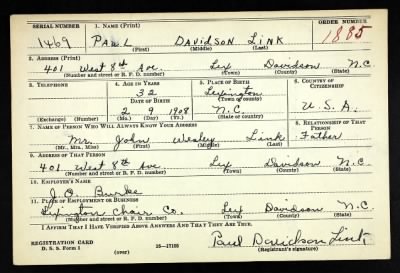 SERIAL NUMBER 1. NAME (Print) ORDER NUMBER
1469 PAUL DAVIDSON LINK 1885
(First) (Middle) (Last)
2. ADDRESS (Print)
401 West 8th Ave. Lex Davidson N.C.
(Number and street or R. F. D. number) (Town) (County) (State)
3. TELEPHONE 4. AGE IN YEARS 5. PLACE OF BIRTH 6. COUNTRY OF CITIZENSHIP
32 Lexington
(Town or county)
DATE OF BIRTH
2 9 1908 N.C. U.S.A.
(Exchange) (Number) (Mo.) (Day) (Yr.) (State or country)
7. NAME OF PERSON WHO WILL ALWAYS KNOW YOUR ADDRESS 8. RELATIONSHIP OF THAT PERSON
Mr. John Wesley Link Father
(Mr., Mrs., Miss) (First) (Middle) (Last)
9. ADDRESS OF THAT PERSON
401 West 8th Ave. Lex Davidson N.C.
(Number and street or R. F. D. number) (Town) (County) (State)
10. EMPLOYER'S NAME
Burke
11. PLACE OF EMPLOYMENT OR BUSINESS
Lexington Chair Co. Lex Davidson N.C.
(Number and street or R. F. D. number) (Town) (County) (State)
I AFFIRM THAT I HAVE VERIFIED ABOVE ANSWERS AND THAT THEY ARE TRUE.
REGISTRATION CARD
D. S. S. Form 1 (over) 16—17105
Paul Davidson Link
(Registrant's signature)